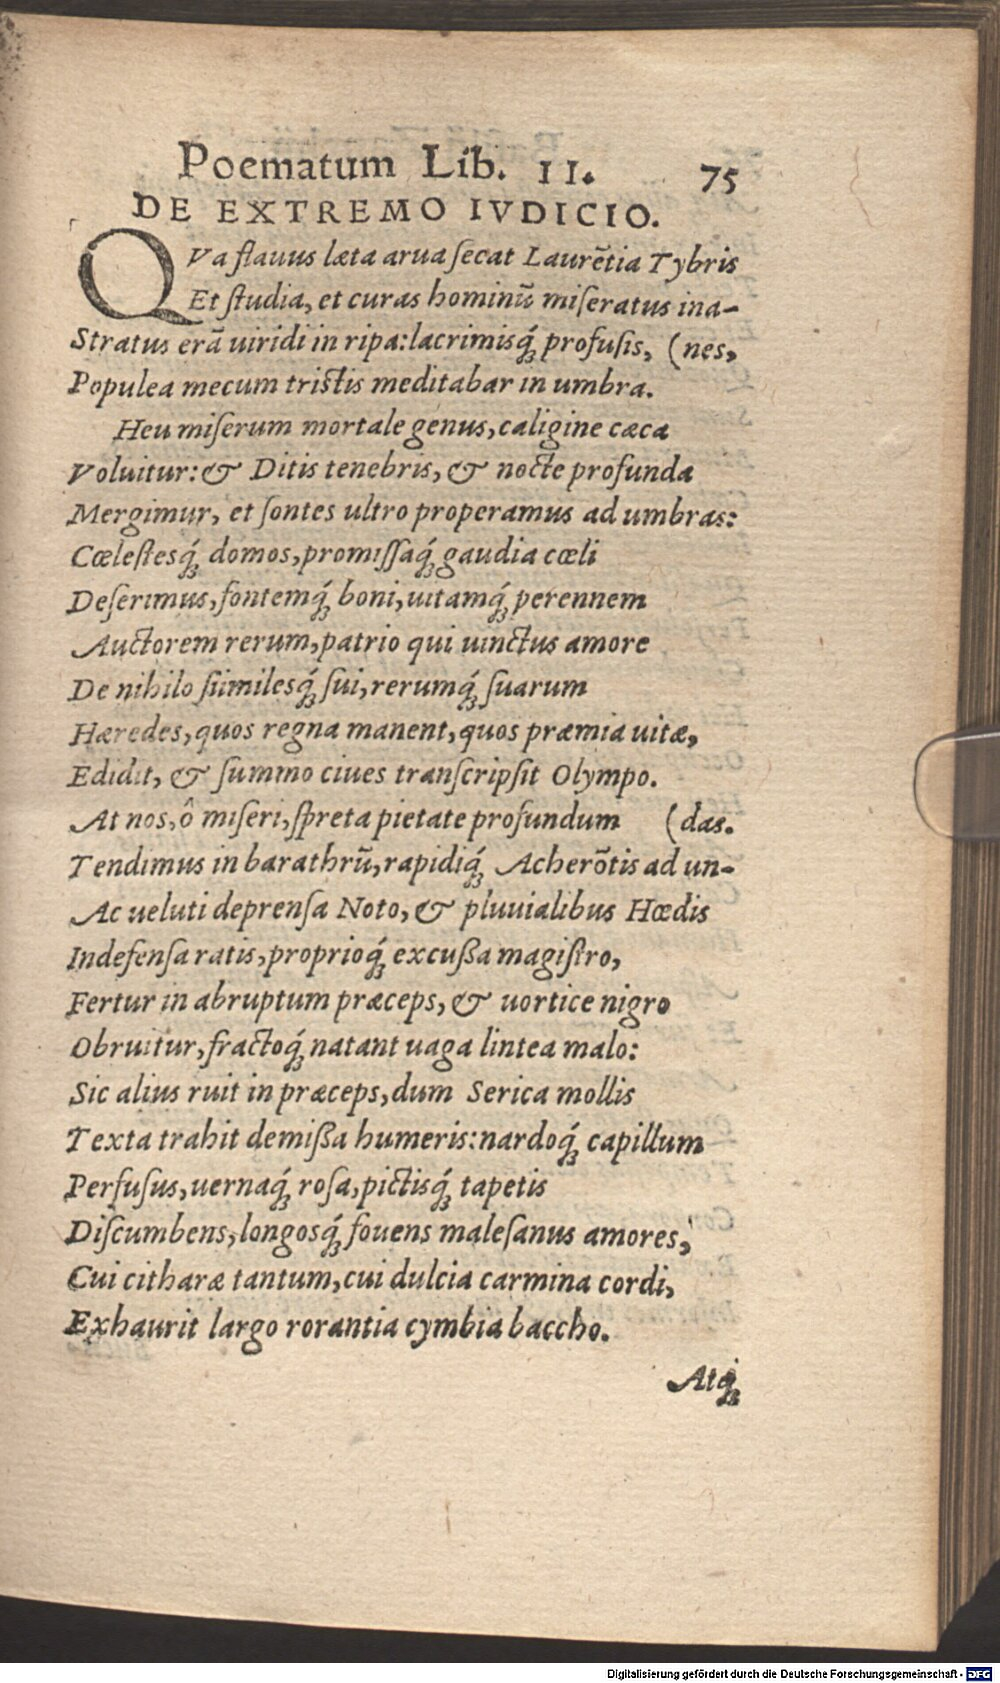 Poematum Lib. II. 75
DE EXTREMO IVDICIO.
QVa flauus læta arua ſecat Laurẽtia Tybris
Et ſtudia, et curas hominũ miſeratus ina-
Stratus erã uiridi in ripa: lacrimisq́ꝫ profuſis, (nes,
Populea mecum triſtis meditabar in umbra.
Heu miſerum mortale genus, caligine cæca
Voluitur: & Ditis tenebris, & nocte profunda
Mergimur, et ſontes ultro properamus ad umbras:
Cœleſtesq́ꝫ domos, promiſſaq́ꝫ gaudia cœli
Deſerimus, fontemq́ꝫ boni, uitamq́ꝫ perennem
Auctorem rerum, patrio qui uinctus amore
De nihilo ſimilesq́ꝫ ſui, rerumq́ꝫ ſuarum
Hæredes, quos regna manent, quos præmia uitæ,
Edidit, & ſummo ciues tranſcripſit Olympo.
At nos, ô miſeri, ſpreta pietate profundum (das.
Tendimus in barathrũ, rapidiq́ꝫ Acherõtis ad un-
Ac ueluti deprenſa Noto, & pluuialibus Hœdis
Indefenſa ratis, proprioq́ꝫ excuſſa magiſtro,
Fertur in abruptum præceps, & uortice nigro
Obruitur, fractoq́ꝫ natant uaga lintea malo:
Sic alius ruit in præceps, dum Serica mollis
Texta trahit demiſſa humeris: nardoq́ꝫ capillum
Perfuſus, uernaq́ꝫ roſa, pictisq́ꝫ tapetis
Diſcumbens, longosq́ꝫ fouens maleſanus amores,
Cui citharæ tantum, cui dulcia carmina cordi,
Exhaurit largo rorantia cymbia baccho.
Atq́ꝫ
Digitalisierung gefördert durch die Deutsche Forschungsgemeinschaft - DFG